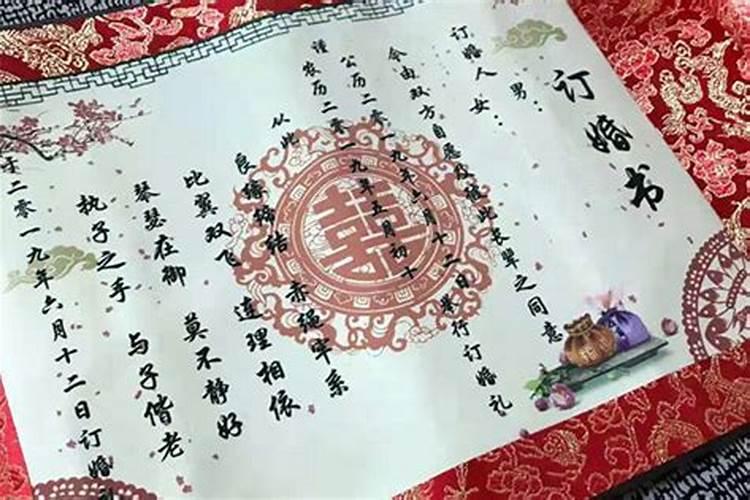 订婚书
订婚人 男：
女：
今由双方自愿及彼此长辈之同意
谨
公历二零一九年六月十二日举行订婚礼
农历二零一九年五月初十
从此
良缘缔结 赤绳牢系
比翼双飞 连理相依
琴瑟在御 莫不静好
执子之手 与子偕老
于二零一九年六月十二日订婚